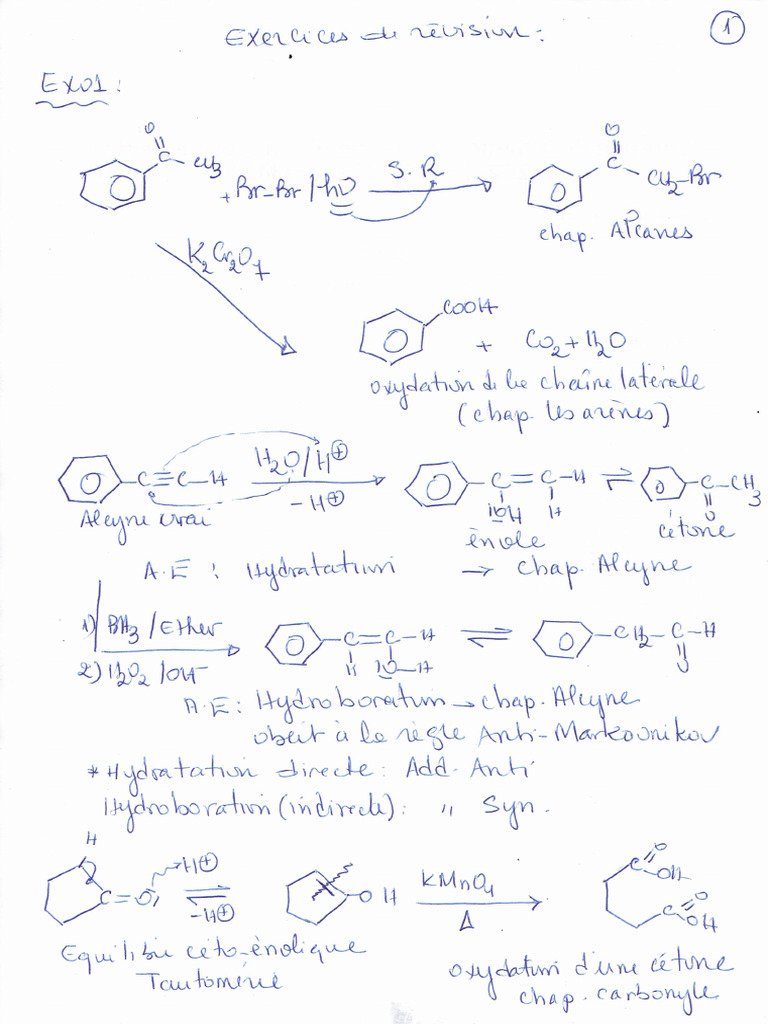 Exercices de révision :
1
EX01 :
O
C - CH3 + Br-Br / hν S.R C - CH2-Br
O
chap. Alcanes
K2Cr2O7
COOH
+ CO2 + H2O
oxydation de la chaîne latérale
(chap. les arènes)
C≡C-H H2O/H⊕ C=C-H ⇌ C-CH3
-H⊕ OH H O
Alcyne vrai ènole cétone
A.E : Hydratation → chap. Alcyne
1) BH3 /Ether C=C-H ⇌ CH2-C-H
2) H2O2 /OH- H O-H O
A.E : Hydroboration → chap. Alcyne
obeit à la règle Anti-Markovnikov
* Hydratation directe : Add. Anti
Hydroboration (indirecte) : " Syn.
H
H⊕ O
C=O ⇌ OH KMnO4 C OH
-H⊕ Δ C O
OH
Equilibre céto-ènolique
Tautomérie
oxydation d'une cétone
chap. carbonyle